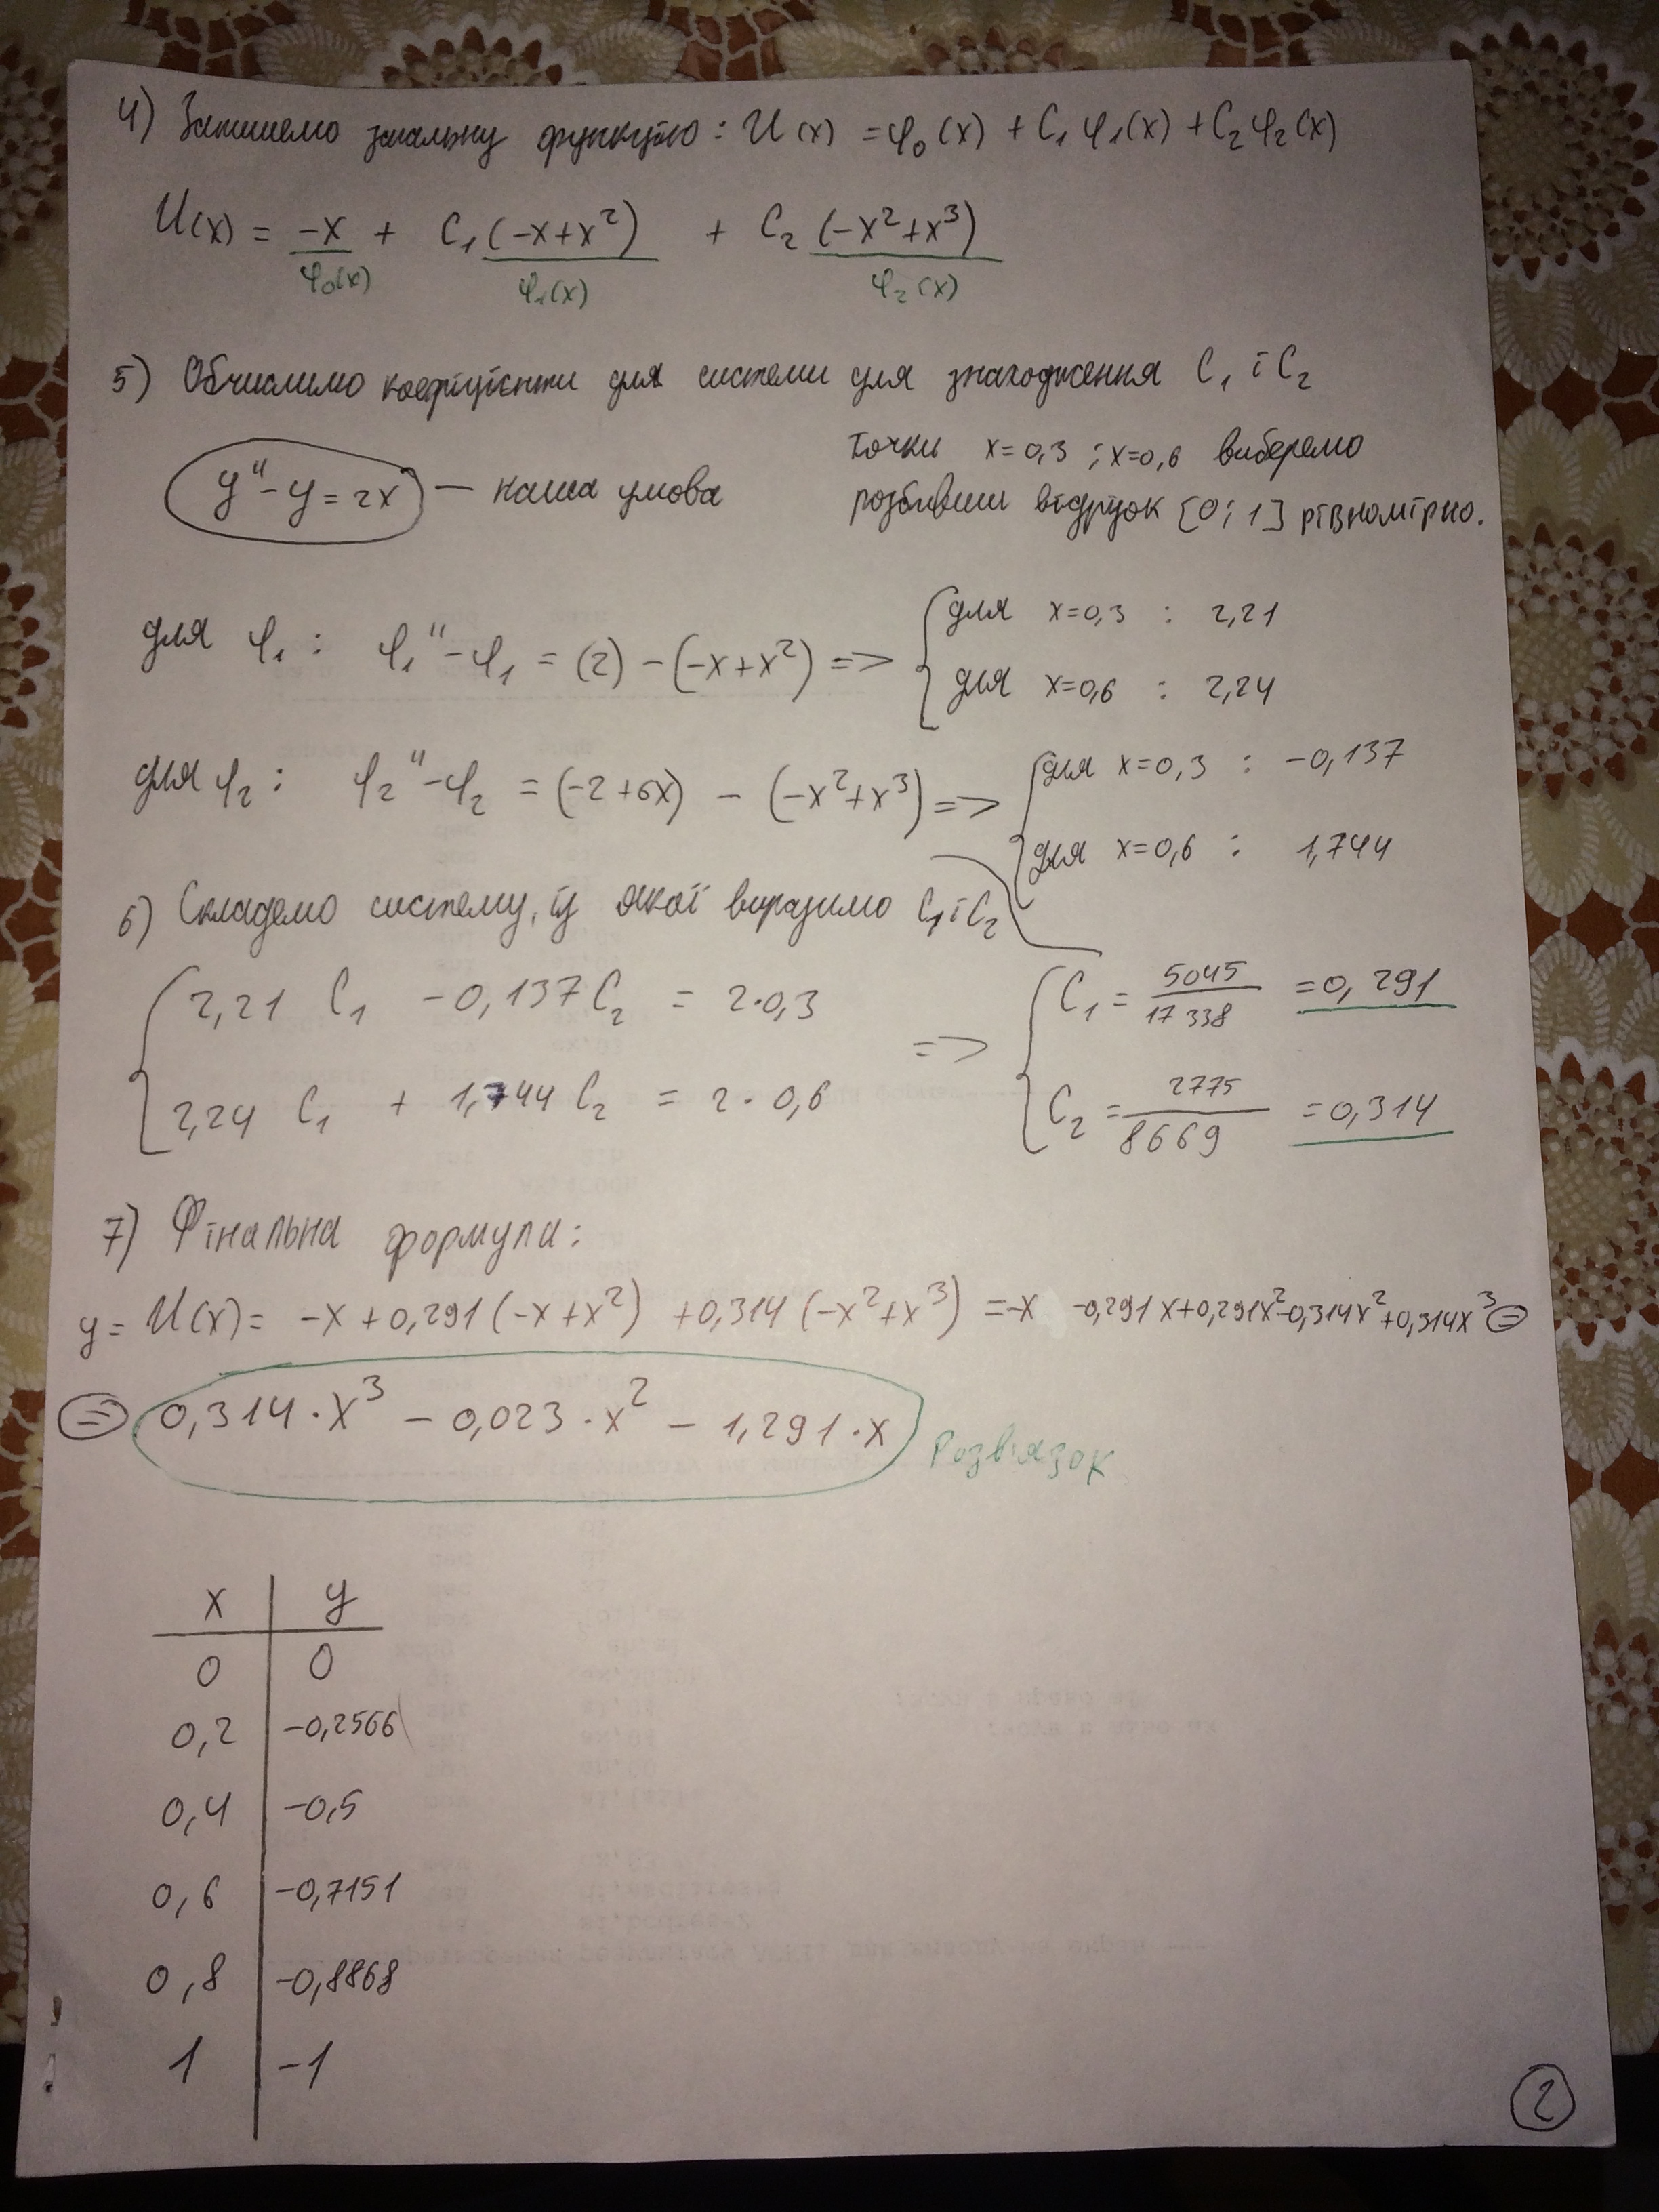 4) Запишемо загальну функцію: U(x) = φ₀(x) + C₁φ₁(x) + C₂φ₂(x)
U(x) = -x + C₁(-x+x²) + C₂(-x²+x³)
φ₀(x) φ₁(x) φ₂(x)
5) Обчислимо коефіцієнти для системи для знаходження C₁ і C₂
y'' - y = 2x — наша умова
точки x=0,3 ; x=0,6 виберемо
розбивши відрізок [0; 1] рівномірно.
для φ₁: φ₁'' - φ₁ = (2) - (-x+x²) =>
для x=0,3 : 2,21
для x=0,6 : 2,24
для φ₂: φ₂'' - φ₂ = (-2+6x) - (-x²+x³) =>
для x=0,3 : -0,137
для x=0,6 : 1,744
6) Складемо систему, із якої виразимо C₁ і C₂
2,21 C₁ - 0,137 C₂ = 2·0,3
2,24 C₁ + 1,744 C₂ = 2·0,6
=>
C₁ = 5045/17338 = 0,291
C₂ = 2775/8669 = 0,314
7) Фінальна формула:
y = U(x) = -x + 0,291(-x+x²) + 0,314(-x²+x³) = -x -0,291x+0,291x²-0,314x²+0,314x³ =
= 0,314·x³ - 0,023·x² - 1,291·x Розв'язок
x y
0 0
0,2 -0,2566
0,4 -0,5
0,6 -0,7151
0,8 -0,8868
1 -1
2